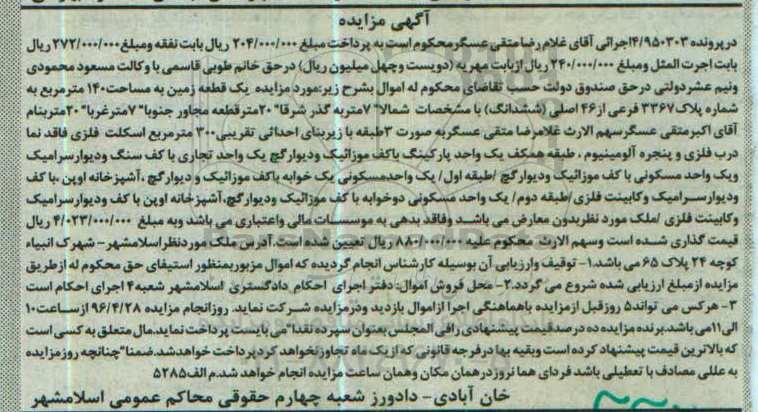 آگهی مزایده
در پرونده ۴/۹۵۰۳۰۳اجرائی آقای غلام رضا متقی عسگر محکوم است به پرداخت مبلغ ۲۰۴/۰۰۰/۰۰۰ ریال بابت نفقه ومبلغ ۲۷۲/۰۰۰/۰۰۰ ریال
بابت اجرت المثل ومبلغ ۲۴۰/۰۰۰/۰۰۰ ریال ازبابت مهریه (دویست وچهل میلیون ریال) درحق خانم طوبی قاسمی با وکالت مسعود محمودی
ونیم عشردولتی درحق صندوق دولت حسب تقاضای محکوم له اموال بشرح زیر:مورد مزایده یک قطعه زمین به مساحت۱۴۰ مترمربع به
شماره پلاک۳۳۶۷ فرعی از۴۶ اصلی (ششدانگ) با مشخصات شمالا" ۷متربه گذر شرقا" ۲۰مترقطعه مجاور جنوبا" ۷مترغربا" ۲۰متربنام
آقای اکبرمتقی عسگرسهم الارث غلامرضا متقی عسگربه صورت ۳طبقه با زیربنای احداثی تقریبی۳۰۰ مترمربع اسکلت فلزی فاقد نما
درب فلزی و پنجره آلومینیوم ، طبقه همکف یک واحد پارکینگ باکف موزائیک ودیوارگچ یک واحد تجاری با کف سنگ ودیوارسرامیک
ویک واحد مسکونی با کف موزائیک ودیوارگچ /طبقه اول/ یک واحدمسکونی یک خوابه باکف موزائیک و دیوارگچ ،آشپزخانه اوپن ،با کف
ودیوارسرامیک وکابینت فلزی /طبقه دوم/ یک واحد مسکونی دوخوابه با کف موزائیک ودیوارگچ،آشپزخانه اوپن با کف ودیوارسرامیک
وکابینت فلزی /ملک مورد نظربدون معارض می باشد وفاقد بدهی به موسسات مالی واعتباری می باشد وبه مبلغ ۴/۰۲۳/۰۰۰/۰۰۰ ریال
قیمت گذاری شده است وسهم الارث محکوم علیه ۸۸۰/۰۰۰/۰۰۰ ریال تعیین شده است.آدرس ملک موردنظراسلامشهر- شهرک انبیاء
کوچه ۲۴ پلاک ۶۵ می باشد.۱- توقیف وارزیابی آن بوسیله کارشناس انجام گردیده که اموال مزبوربمنظور استیفای حق محکوم له ازطریق
مزایده ازمبلغ ارزیابی شده شروع می گردد.۲- محل فروش اموال: دفتر اجرای احکام دادگستری اسلامشهر شعبه۴ اجرای احکام است
۳- هرکس می تواند۵ روزقبل ازمزایده باهماهنگی اجرا ازاموال بازدید ودرمزایده شرکت نماید. روزانجام مزایده ۹۶/۴/۲۸ ازساعت۱۰
الی۱۱می باشد.برنده مزایده ده درصدقیمت پیشنهادی رافی المجلس بعنوان سپرده نقدا"می بایست پرداخت نماید.مال متعلق به کسی است
که بالاترین قیمت پیشنهاد کرده است وبقیه بها درفرجه قانونی که ازیک ماه تجاوزنخواهد کرد پرداخت خواهدشد.ضمنا"چنانچه روزمزایده
به عللی مصادف با تعطیلی باشد فردای هما نروزدرهمان مکان وهمان ساعت مزایده انجام خواهد شد.م الف۵۲۸۵
خان آبادی- دادورز شعبه چهارم حقوقی محاکم عمومی اسلامشهر